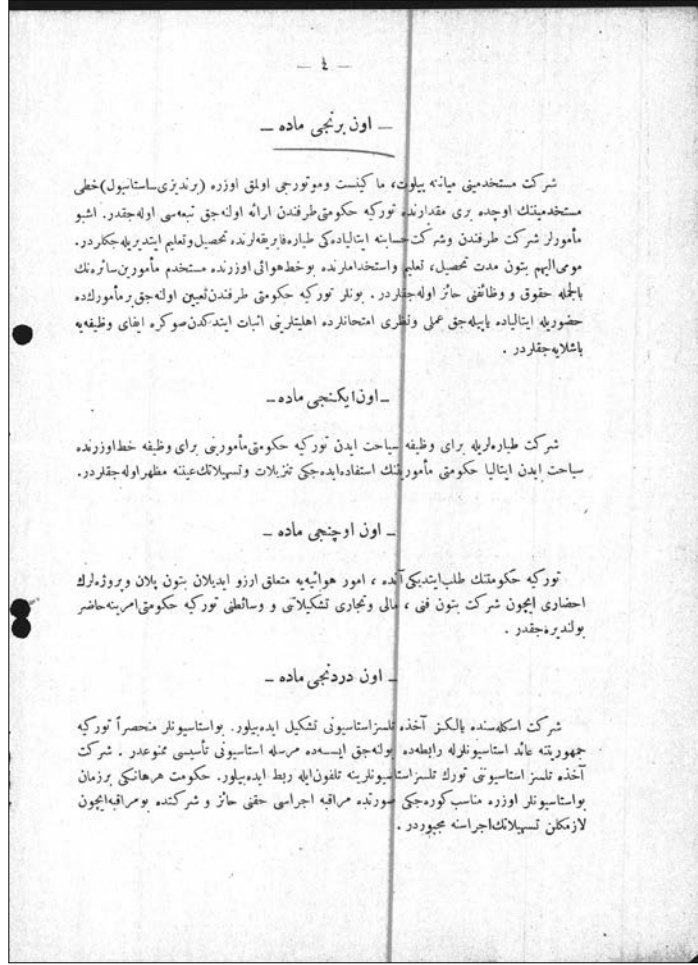 — ٤ —
— اون برنجی ماده —
شركت مستخدمینی میاننه پیلوت، ماكینست وموتورجی اولمق اوزره (برندیزی ـ استانبول) خطی
مستخدمیننك اوچده بری مقدارنده توركیه حكومتی طرفندن ارائه اولنه جق تبعه سی اوله جقدر. اشبو
مأمورلر شركت طرفندن وشركت حسابنه ایتالیاده كی طیاره فابریقه لرنده تحصیل وتعلیم ایتدیریله جكلردر.
مومی الیهم بتون مدت تحصیل، تعلیم واستخداملرنده بو خط هوائی اوزرنده مستخدم مأمورین سائره نك
بالجمله حقوق و وظائفنی حائز اوله جقلردر. بونلر توركیه حكومتی طرفندن تعیین اولنه جق بر مأمورك ده
حضوریله ایتالیاده یاپیله جق عملی ونظری امتحانلرده اهلیتلرینی اثبات ایتدكدن صوكره ایفای وظیفه یه
باشلایه جقلردر .
— اون ایكنجی ماده —
شركت طیاره لریله برای وظیفه سیاحت ایدن توركیه حكومتی مأمورینی برای وظیفه خط اوزرنده
سیاحت ایدن ایتالیا حكومتی مأمورینك استفاده ایده جكی تنزیلات وتسهیلاتك عیننه مظهر اوله جقلردر.
— اون اوچنجی ماده —
توركیه حكومتنك طلب ایتدیكی آنده ، امور هوائیه یه متعلق ارزو ایدیلان بتون پلان وپروژه لرك
احضاری ایچون شركت بتون فنی ، مالی وتجاری تشكیلاتی و وسائطنی توركیه حكومتی امرینه حاضر
بولندیره جقدر .
— اون دردنجی ماده —
شركت اسكله سنده یالكز آخذه تلسز استاسیونی تشكیل ایده بیلور. بو استاسیونلر منحصراً توركیه
جمهوریتنه عائد استاسیونلرله رابطه ده بولنه جق ایسه ده مرسله استاسیونی تأسیسی ممنوعدر . شركت
آخذه تلسز استاسیوننی تورك تلسز استاسیونلرینه تلفون ایله ربط ایده بیلور. حكومت هر هانكی بر زمان
بو استاسیونلر اوزره مناسب كوره جكی صورتده مراقبه اجراسی حقنی حائز و شركتده بو مراقبه ایچون
لازمكلن تسهیلاتك اجراسنه مجبوردر .